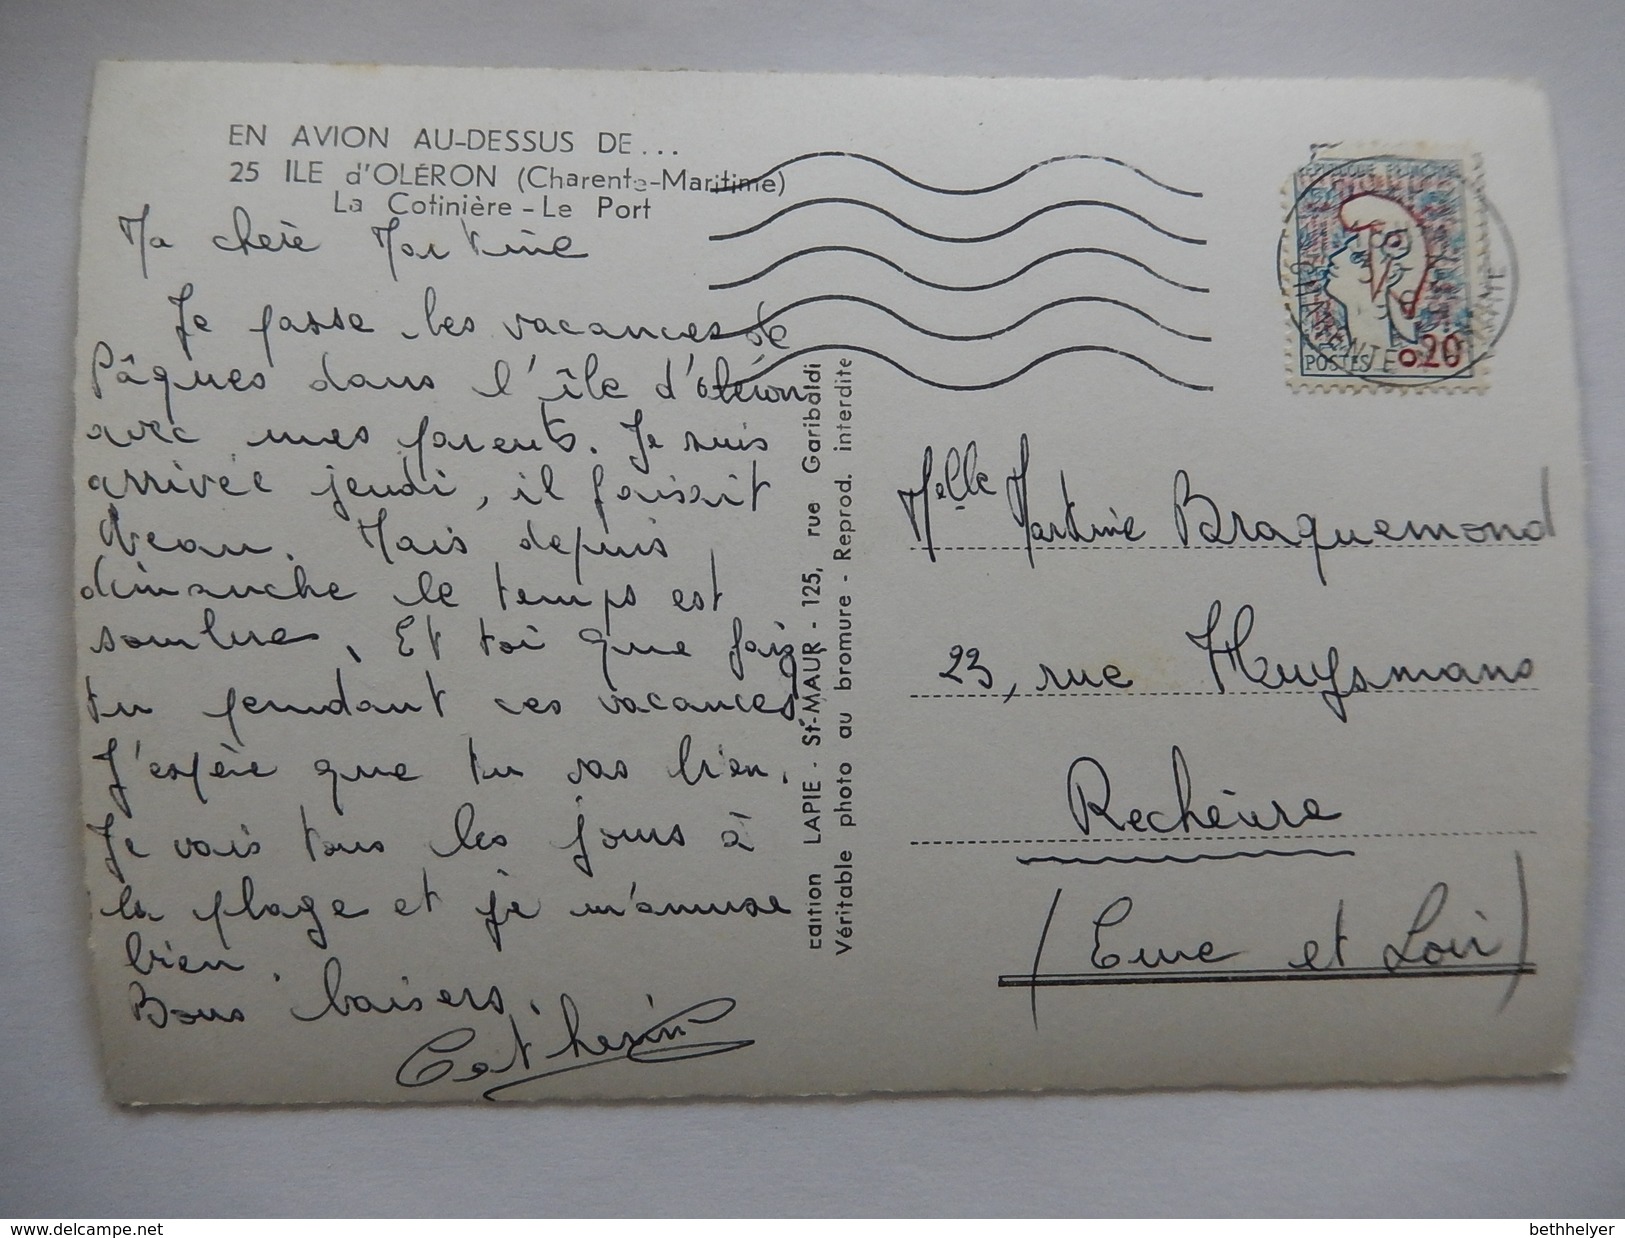 EN AVION AU-DESSUS DE...
25 ILE d'OLÉRON (Charente-Maritime)
La Cotinière - Le Port
Ma chère Martine
Je passe les vacances de
Pâques dans l'île d'oléron
avec mes parents. Je suis
arrivée jeudi, il faisait
beau. Mais depuis
dimanche le temps est
sombre. Et toi que fais
tu pendant ces vacances
J'espère que tu vas bien.
Je vais tous les jours à
la plage et je m'amuse
bien.
Bons baisers.
Catherine
Edition LAPIE - St-MAUR - 125, rue Garibaldi
Véritable photo au bromure - Reprod. interdite
REPUBLIQUE FRANÇAISE
POSTES 0,20
CHARENTE
Melle Martine Braquemond
23, rue Huysmans
Rechèvre
(Eure et Loir)
delcampe.net
bethhelyer